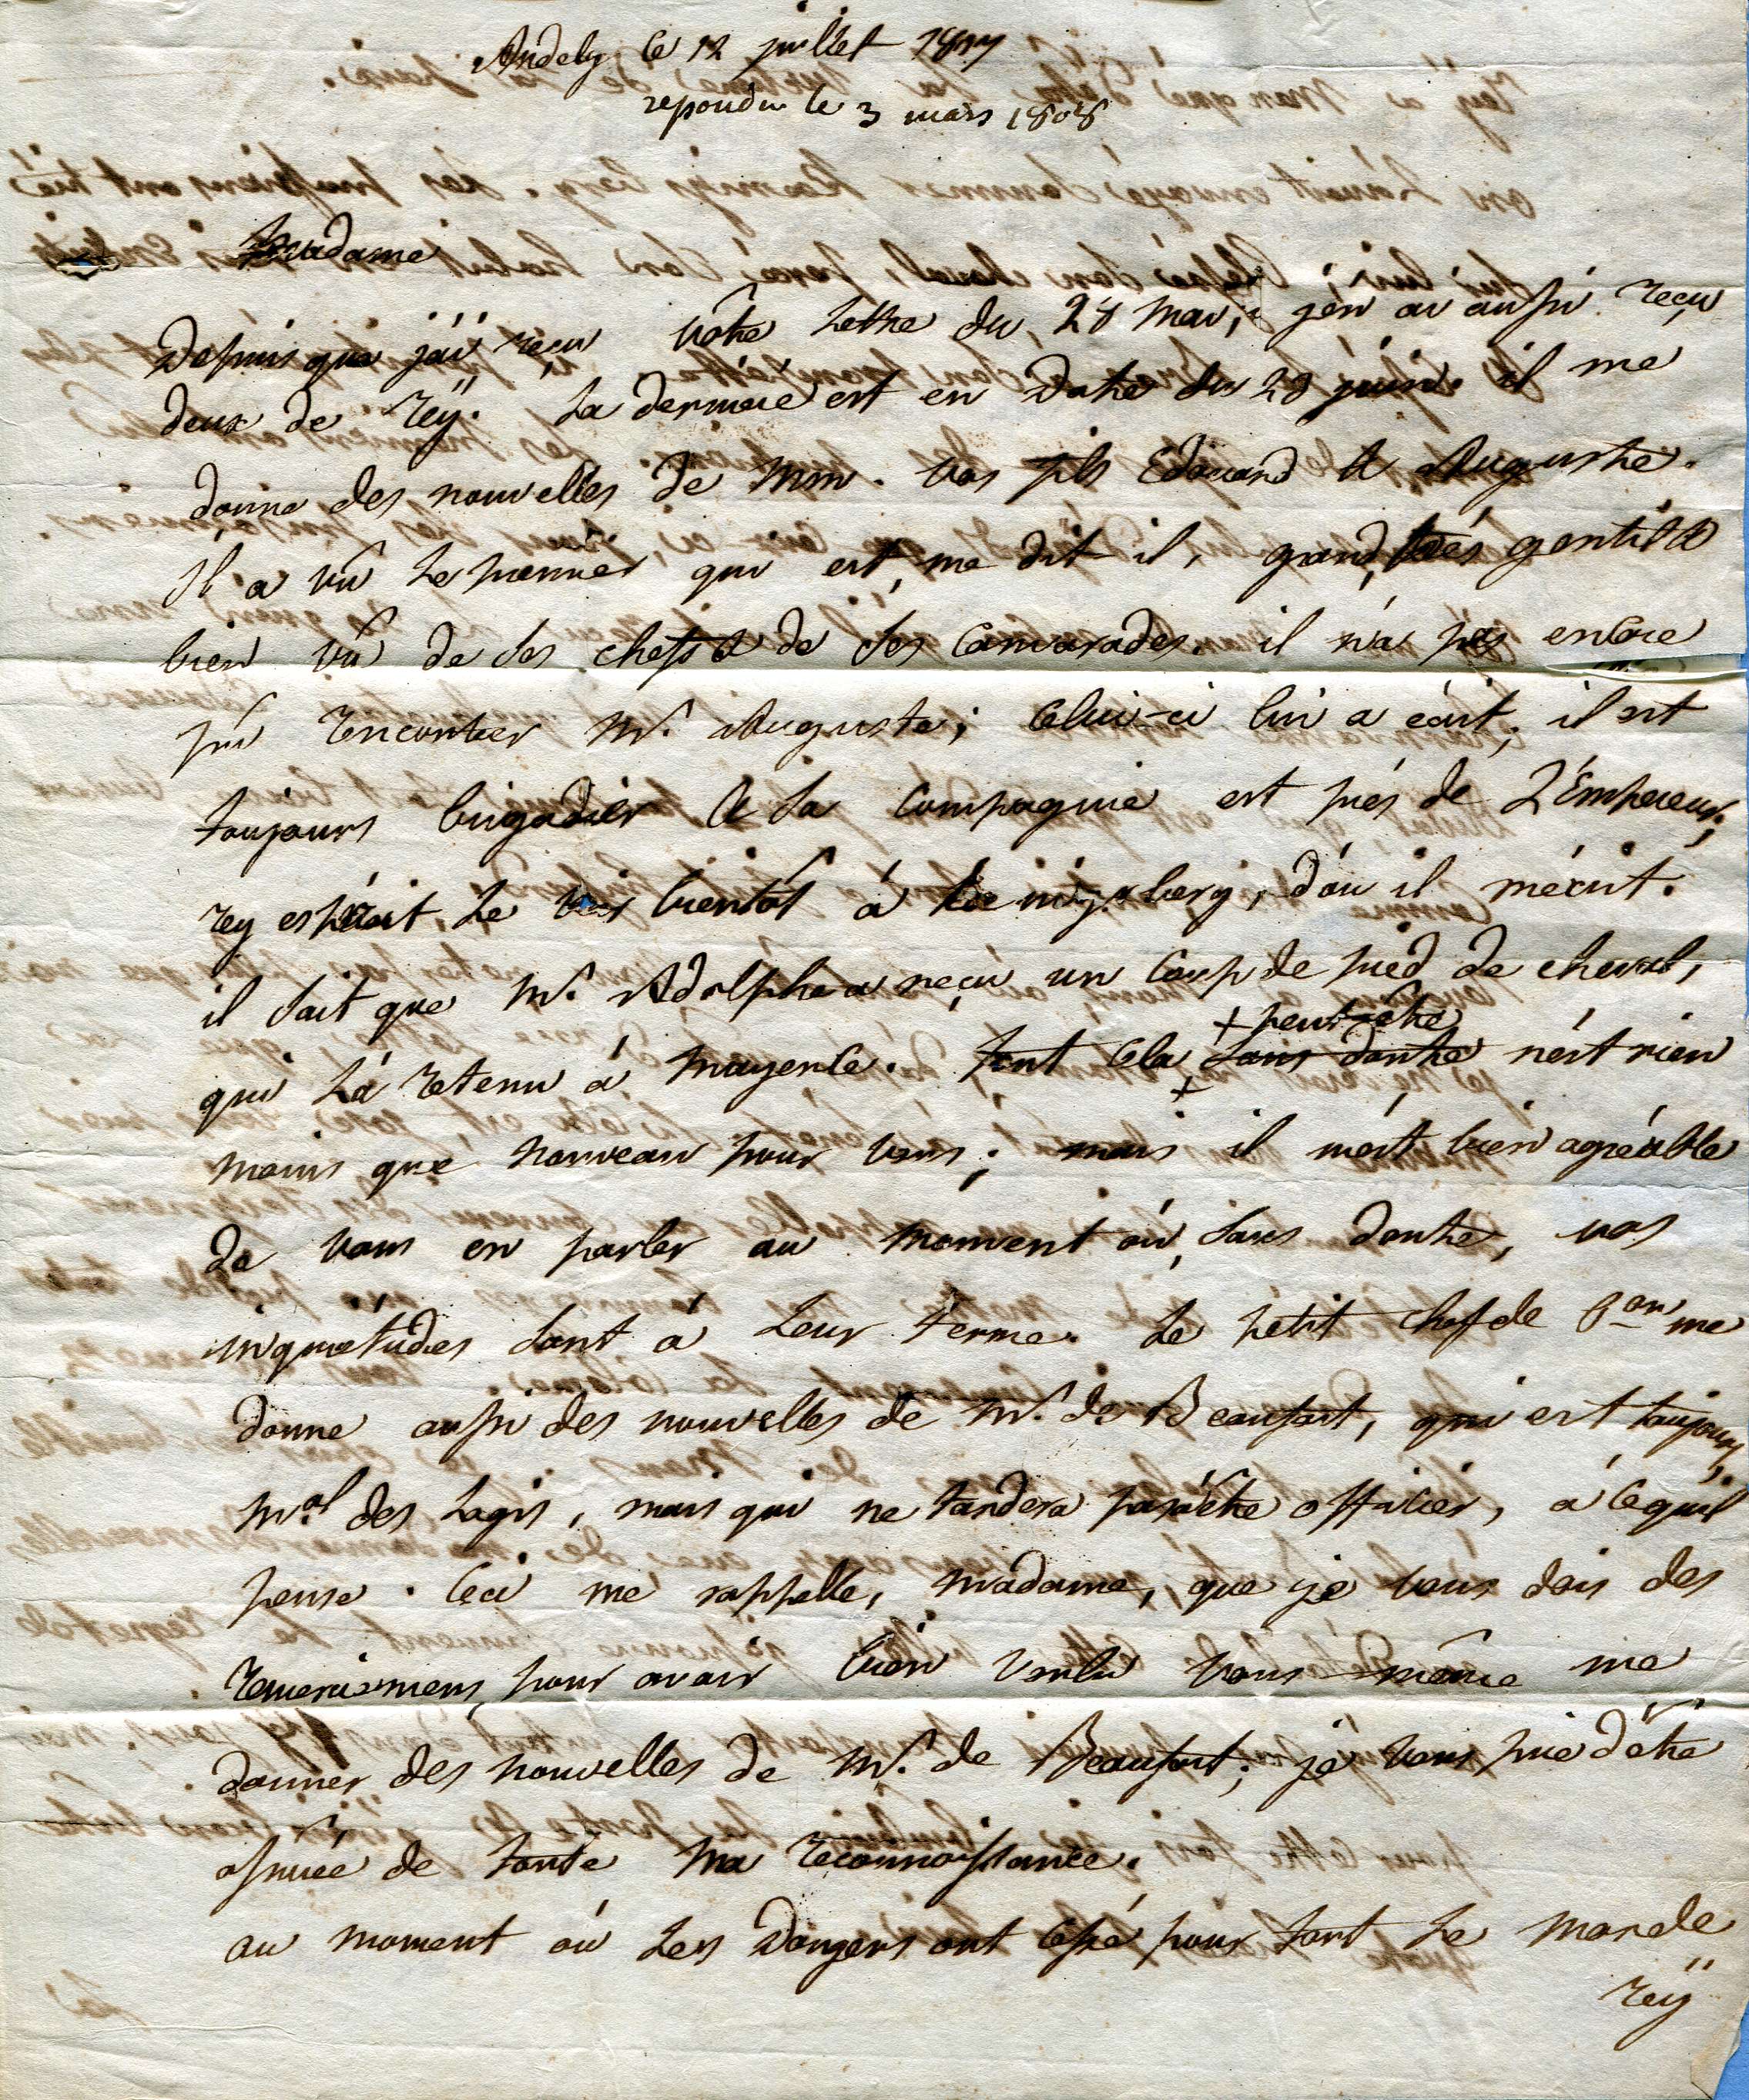 Andely le 12 juillet 1807
repondu le 3 mars 1808
Madame
Depuis que j'ai reçu vôtre Lettre du 28 mai, j'en ai aussi reçu
deux de reÿ. La derniere est en Date du 23 juin. il me
donne des nouvelles de mm. vos fils Edouard et Auguste.
Il a vû Le premier qui est, me dit il, grand, très gentil et
bien vû de Ses chefs et de Ses Camarades. il n'a pas encore
pû rencontrer Mr. Auguste; Celui-ci lui a écrit; il est
toujours brigadier et Sa Compagnie est près de L'Empereur;
rey espéroit Le voir bientôt à Kœnigsberg, d'où il m'écrit.
il Sait que Mr. Adolphe a reçu un Coup de pied de cheval,
+ peut-être
qui L'a retenu à Mayence. tout Cela + Sans doute n'est rien
moins que nouveau pour vous; mais il m'est bien agréable
de vous en parler au moment où, Sans doute, vos
inquiétudes Sont à Leur terme. Le petit Chef de Bon me
donne aussi des nouvelles de Mr. de Beaufort, qui est toujours
Mal des Logis, mais qui ne tardera pas à être officier, à Ce qu'il
pense. Ceci me rappelle, Madame, que je vous dois des
remercimens pour avoir bien voulu vous-même me
donner des nouvelles de Mr. de Beaufort; je vous prie d'être
assurée de toute Ma reconnoissance.
au moment où Les Dangers ont Cessé pour tout Le Monde
reÿ